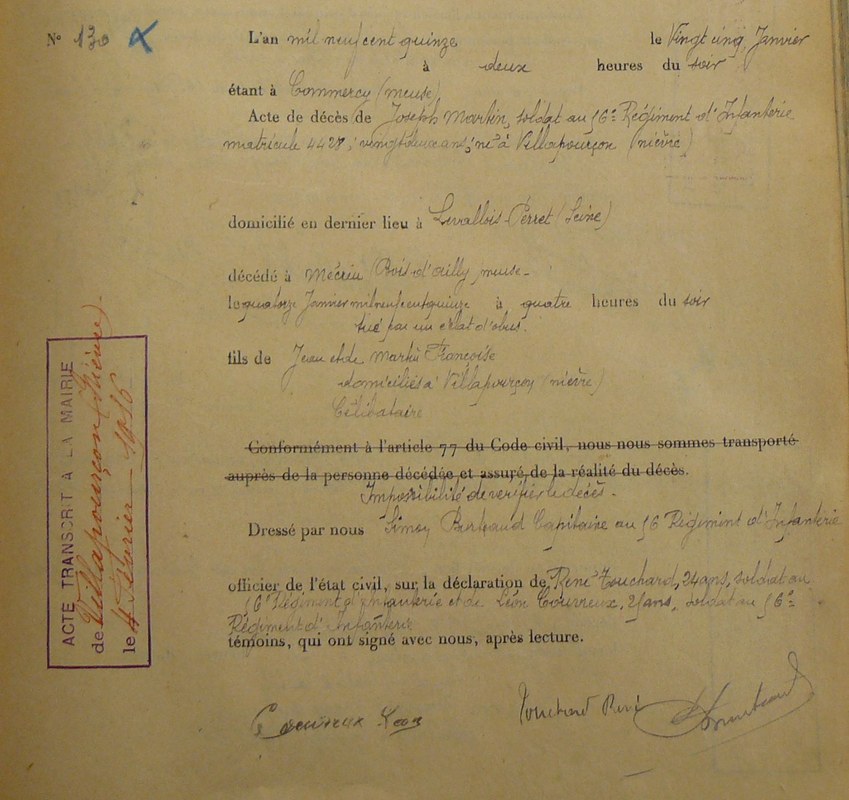 N° 130
L'an mil neuf cent quinze le Vingt cinq Janvier
à deux heures du soir
étant à Commercy (meuse)
Acte de décès de Joseph Martin, soldat au 56e Régiment d'Infanterie
matricule 4428, vingt deux ans, né à Villapourçon (nièvre)
domicilié en dernier lieu à Levallois-Perret (Seine)
décédé à Mécrin (Bois d'ailly) meuse -
le quatorze Janvier mil neuf cent quinze à quatre heures du soir
tué par un éclat d'obus.
fils de Jean et de Martin Françoise
domiciliés à Villapourçon (nièvre)
Célibataire
Conformément à l'article 77 du Code civil, nous nous sommes transporté
auprès de la personne décédée et assuré de la réalité du décès.
Impossibilité de vérifier le décès -
Dressé par nous Simon Capitaine au 56 Régiment d'Infanterie
officier de l'état civil, sur la déclaration de René Touchard, 24 ans, soldat au
56e Régiment d'infanterie et de Léon Couvreux, ans, soldat au 56e
Régiment d'Infanterie
témoins, qui ont signé avec nous, après lecture.
Couvreux Léon Touchard René
ACTE TRANSCRIT A LA MAIRIE
de Villapourçon (Nièvre)
le 4 Février 1916